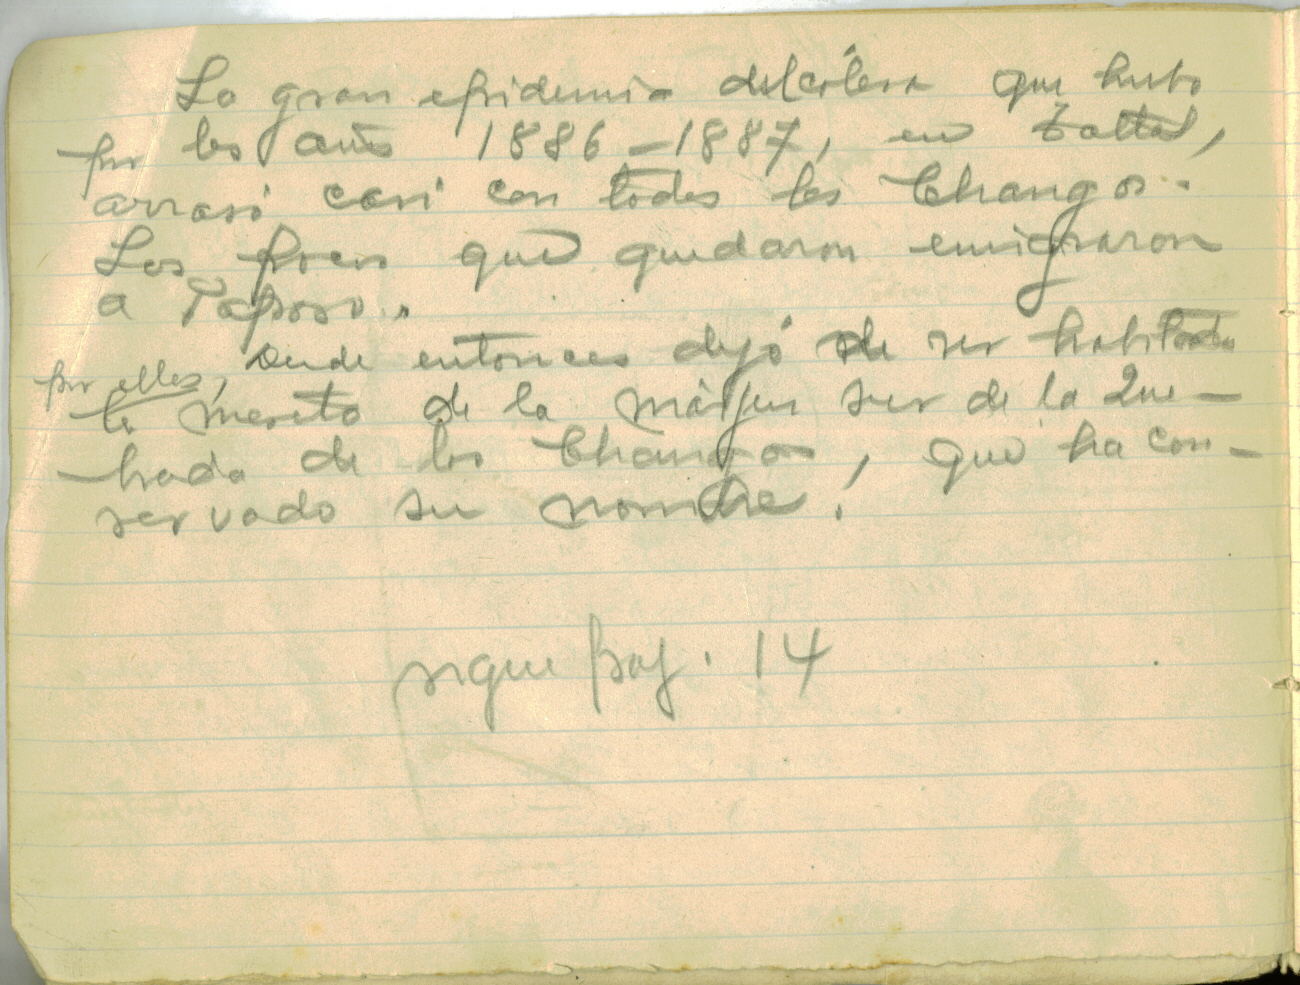 La gran epidemia del cólera que hubo
por los años 1886-1887, en Taltal,
arrasó casi con todos los Changos.
Los pocos que quedaron emigraron
a Paposo.
Desde entonces dejó de ser habitada
por ellos,
la meseta de la márjen sur de la Que-
brada de los Changos, que ha con-
servado su nombre.
sigue paj. 14